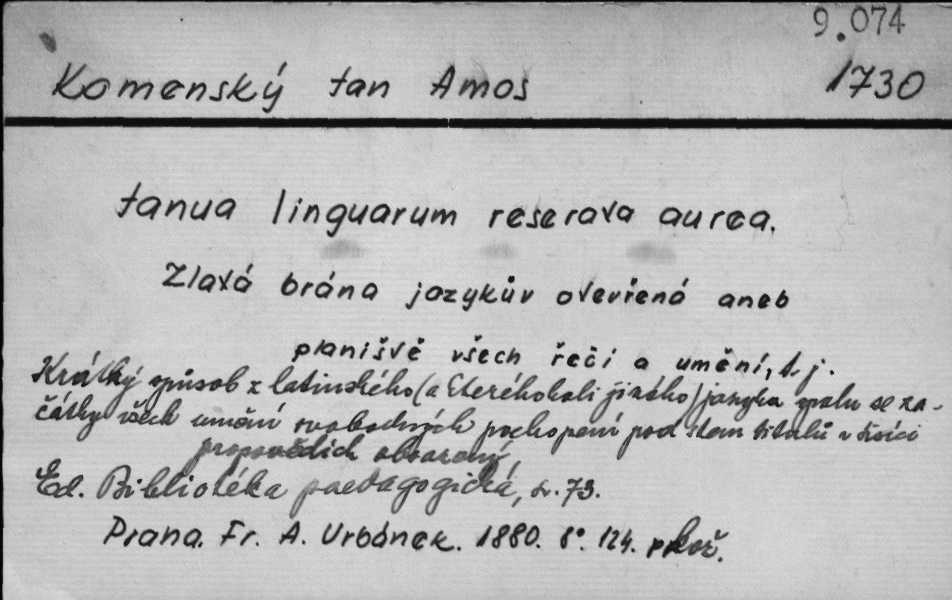 9.074
Komenský Jan Amos 1730
Janua linguarum reserava aurea.
Zlatá brána jazykův otevřená aneb
planišvě všech řečí a umění, t. j.
Krátký způsob z latinského (a kteréhokoli jiného) jazyka spolu se za-
čátky všech umění svobodných pochopení pod stem titulů v tisíci
propovědích obsazený
Ed. Bibliotéka paedagogická, sv. 73.
Praha. Fr. A. Urbánek. 1880. 8°. 124.